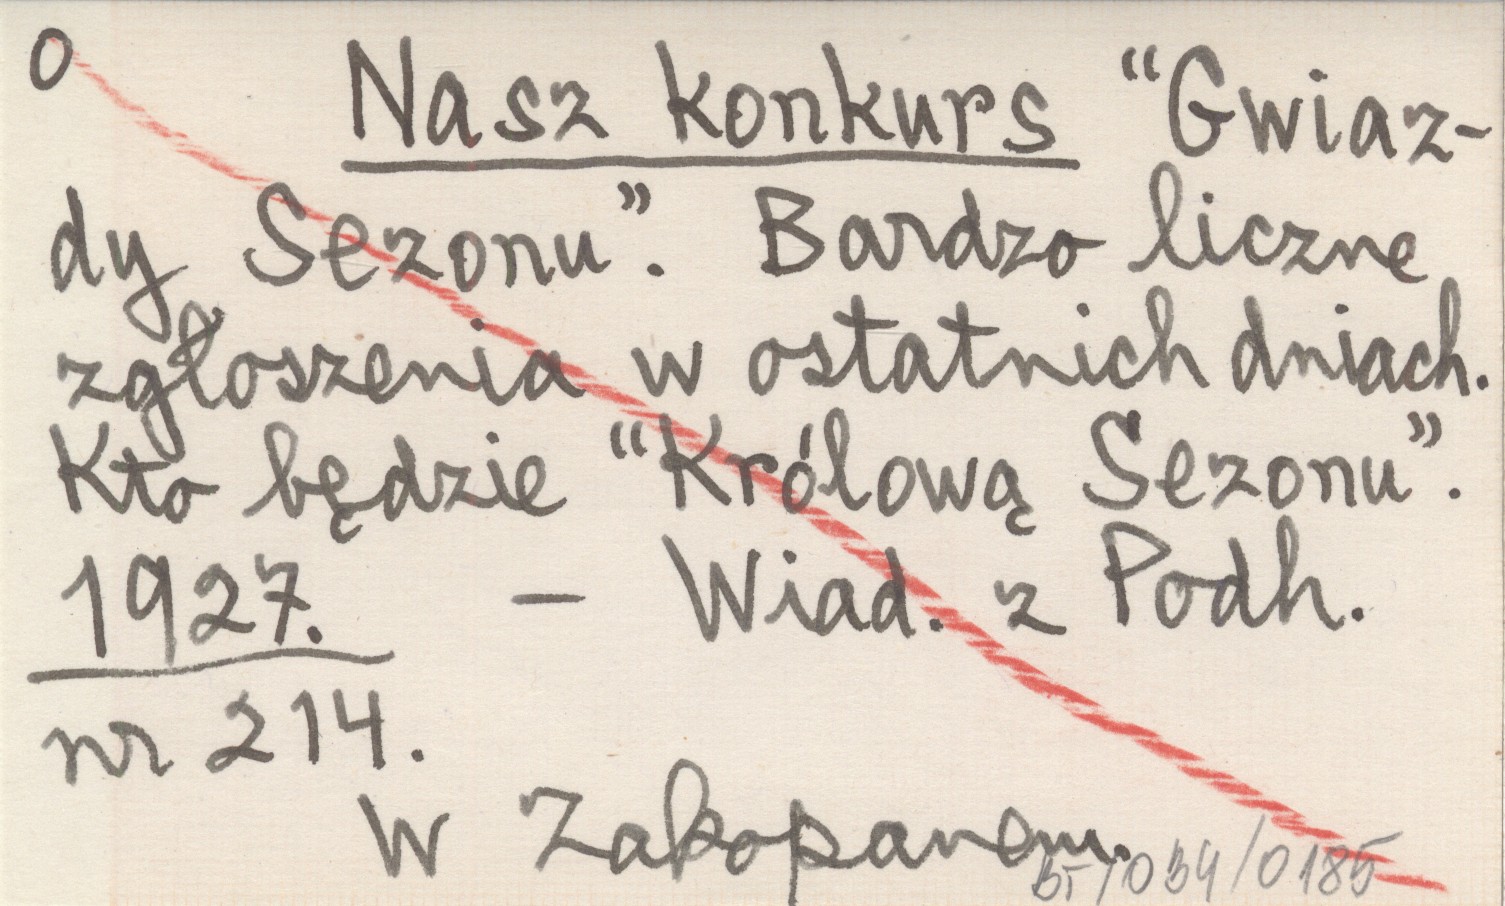 O Nasz konkurs "Gwiaz-
dy Sezonu". Bardzo liczne
zgłoszenia w ostatnich dniach.
Kto będzie "Królową Sezonu".
1927. – Wiad. z Podh.
nr 214.
W Zakopanem.
BT/034/0185